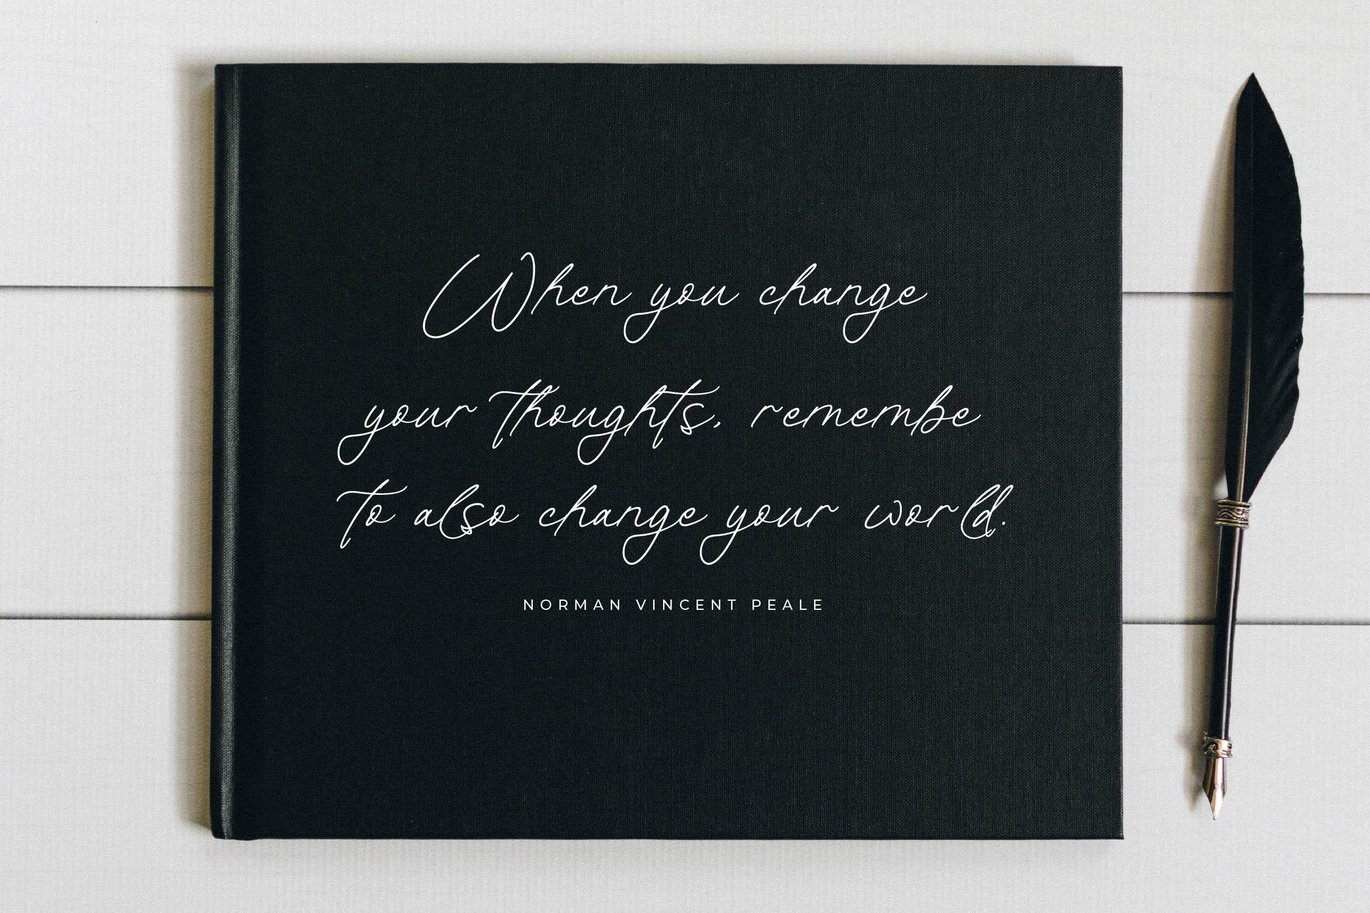 When you change
your thoughts, remembe
to also change your world.
NORMAN VINCENT PEALE